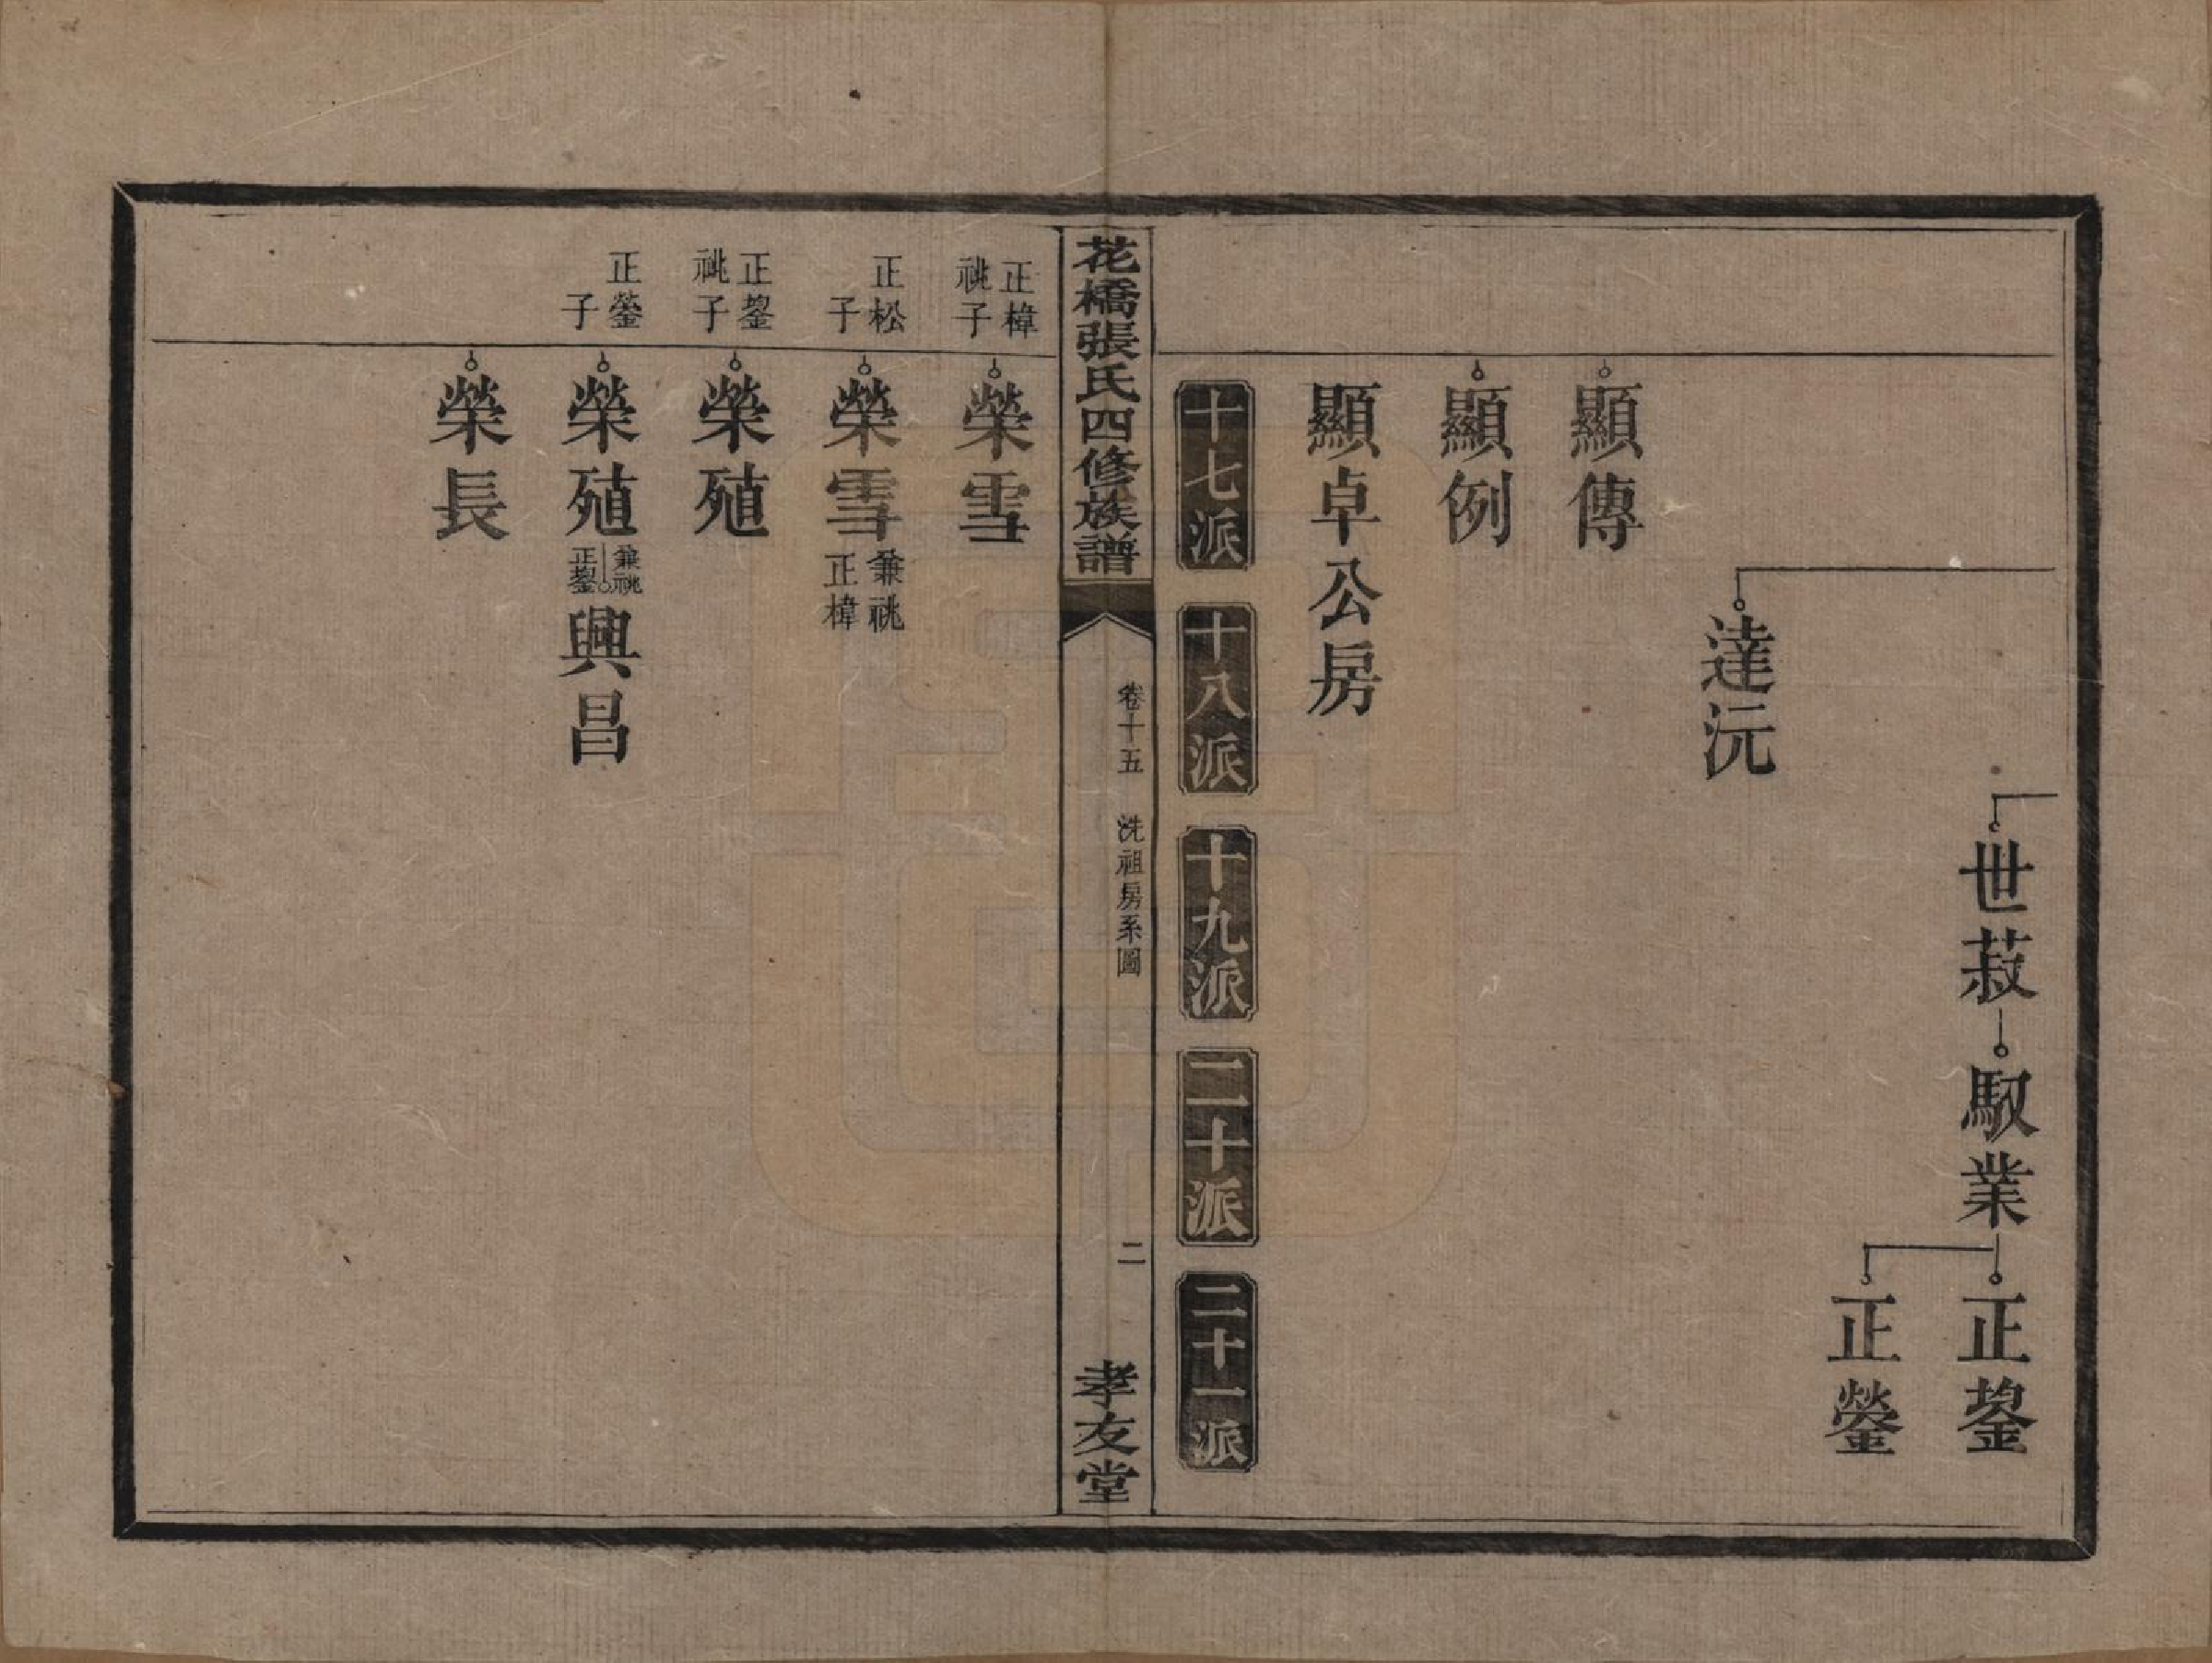 世菽 馭業 正鋆
正鎣
達沅
顯傳
顯例
顯卓公房
十七派 十八派 十九派 二十派 二十一派
花橋張氏四修族譜 卷十五 洗祖房系圖 二 孝友堂
正樟
祧子
榮雪
正松
子
榮雪 兼祧
正樟
正鋆
祧子
榮殖
正鎣
子
榮殖 兼祧
正鋆 興昌
榮長